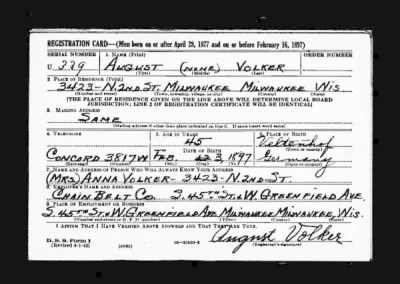 REGISTRATION CARD—(Men born on or after April 28, 1877 and on or before February 16, 1897)
SERIAL NUMBER 1. NAME (Print) ORDER NUMBER
U 339 AUGUST (NONE) VOLKER
(First) (Middle) (Last)
2. PLACE OF RESIDENCE (Print)
3423-N.2ND ST, MILWAUKEE MILWAUKEE WIS
(Number and street) (Town, township, village, or city) (County) (State)
[THE PLACE OF RESIDENCE GIVEN ON THE LINE ABOVE WILL DETERMINE LOCAL BOARD
JURISDICTION; LINE 2 OF REGISTRATION CERTIFICATE WILL BE IDENTICAL]
3. MAILING ADDRESS
SAME
[Mailing address if other than place indicated on line 2. If same insert word same]
4. TELEPHONE 5. AGE IN YEARS 6. PLACE OF BIRTH
45 Veltenhof
DATE OF BIRTH (Town or county)
CONCORD 3817W FEB. 3, 1897 Germany
(Exchange) (Number) (Mo.) (Day) (Yr.) (State or country)
7. NAME AND ADDRESS OF PERSON WHO WILL ALWAYS KNOW YOUR ADDRESS
(MRS) ANNA VOLKER - 3423-N.2ND ST.
8. EMPLOYER'S NAME AND ADDRESS
CHAIN BELT CO. S.45TH ST. & W. GREENFIELD AVE
9. PLACE OF EMPLOYMENT OR BUSINESS
S.45TH ST. & W. GREENFIELD AVE MILWAUKEE MILWAUKEE, WIS.
(Number and street or R. F. D. number) (Town) (County) (State)
I AFFIRM THAT I HAVE VERIFIED ABOVE ANSWERS AND THAT THEY ARE TRUE.
D. S. S. Form 1
(Revised 4-1-42) (over)
August Volker
(Registrant's signature)